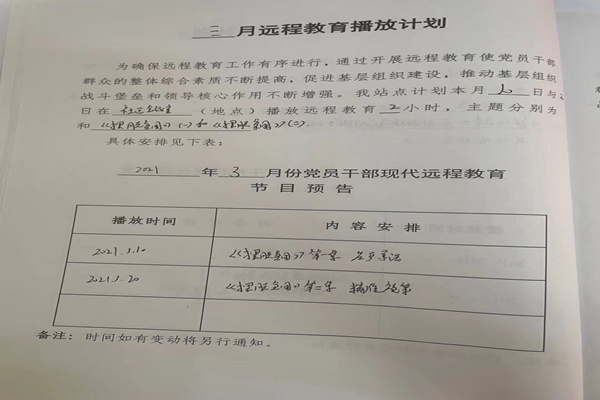 三 月远程教育播放计划
为确保远程教育工作有序进行,通过开展远程教育使党员干部
群众的整体综合素质不断提高,促进基层组织建设,推动基层组织
战斗堡垒和领导核心作用不断增强。我站点计划本月 日与
日在 (地点)播放远程教育 2 小时,主题分别为
和 《摆脱贫困》(一)和《摆脱贫困》(二).
具体安排见下表:
2021 年 3 月份党员干部现代远程教育
节目预告
播放时间 内容安排
2021.3.10 《摆脱贫困》第一集
2021.3.20 《摆脱贫困》第二集 精准
备注: 时间如有变动将另行通知。